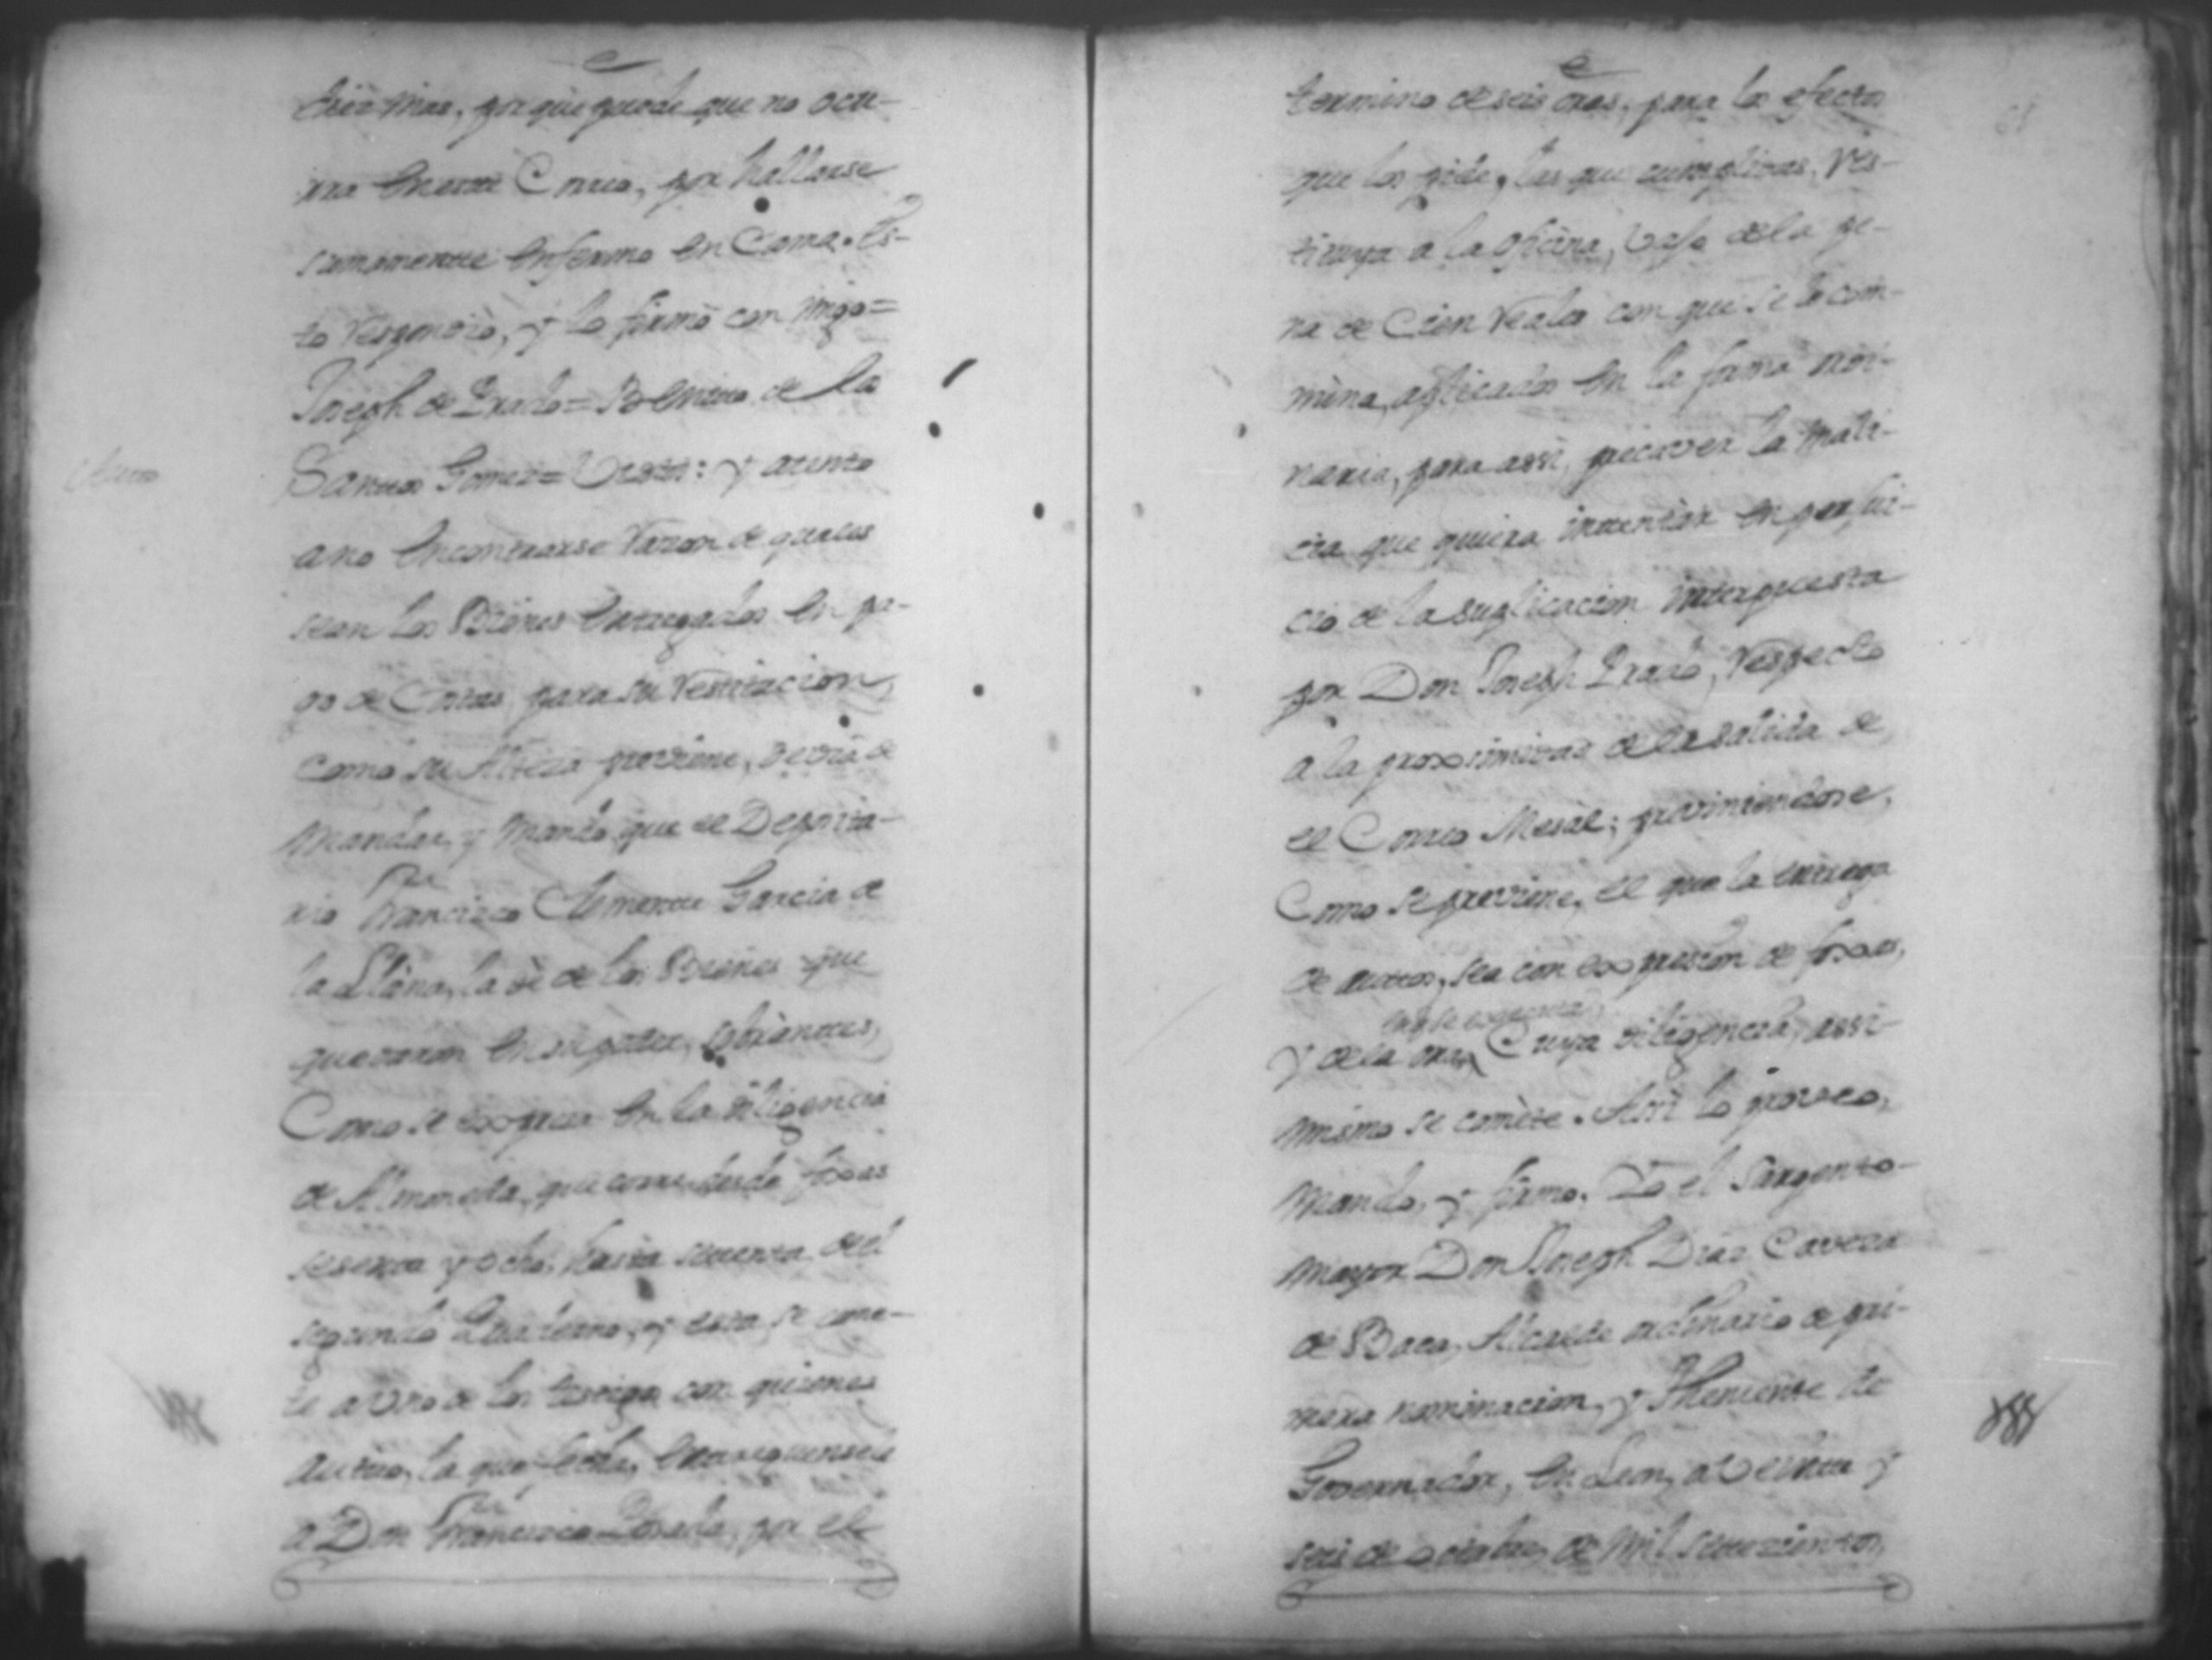 terminos, por que puede que no ocu-
rra en este Correo, por hallarse
sumamente enfermo en Cama. Es-
to respondio, y lo firmò con migo=
Joseph de Prado= Bentura de la
Auto
Santos Gomez= Vistos: y atento
a no encontrarse razon de quales
sean los Bienes entregados en pa-
go de Costas para su restitucion,
como su Alteza previene, devia de
mandar, y mandò que el Deposita-
rio Francisco Clemente Garcia de
la Llana, la dè de los Bienes que
quedaron en su poder, sobrantes,
Como se expresa en la diligencia
de Almoneda, que corre desde foxas
sesenta y ocho, hasta setenta del
segundo Quaderno, y esta se come-
te a Vno de los testigos con quienes
actuo, la que fecha, entreguensele
a Don Francisco Posada, por el
termino de seis oras, para los efectos
que los pide, las que cumplidas, res-
tituya a la oficina, vajo de la pe-
na de Cien reales con que se le con-
mina, aplicados en la forma ordi-
naria, para assi, precaver la mali-
cia que quiera intentar en perjui-
cio de la suplicacion interpuesta
por Don Joseph Prado, respecto
a la proximidad de la salida de
el Correo Mesal; previniendose,
Como se previene, el que la entrega
de autos, sea con expresion de foxas,
y de la ora, Cuya diligencia, assi-
mismo se comète. Assi lo proveo,
mando, y firmo. Yo el Sargento-
mayor Don Joseph Diaz Caveza
de Baca, Alcalde ordinario de pri-
mera nominacion, y Theniente de
Governador, en Leon, a Veinte y
seis de octubre, de mil setecientos,